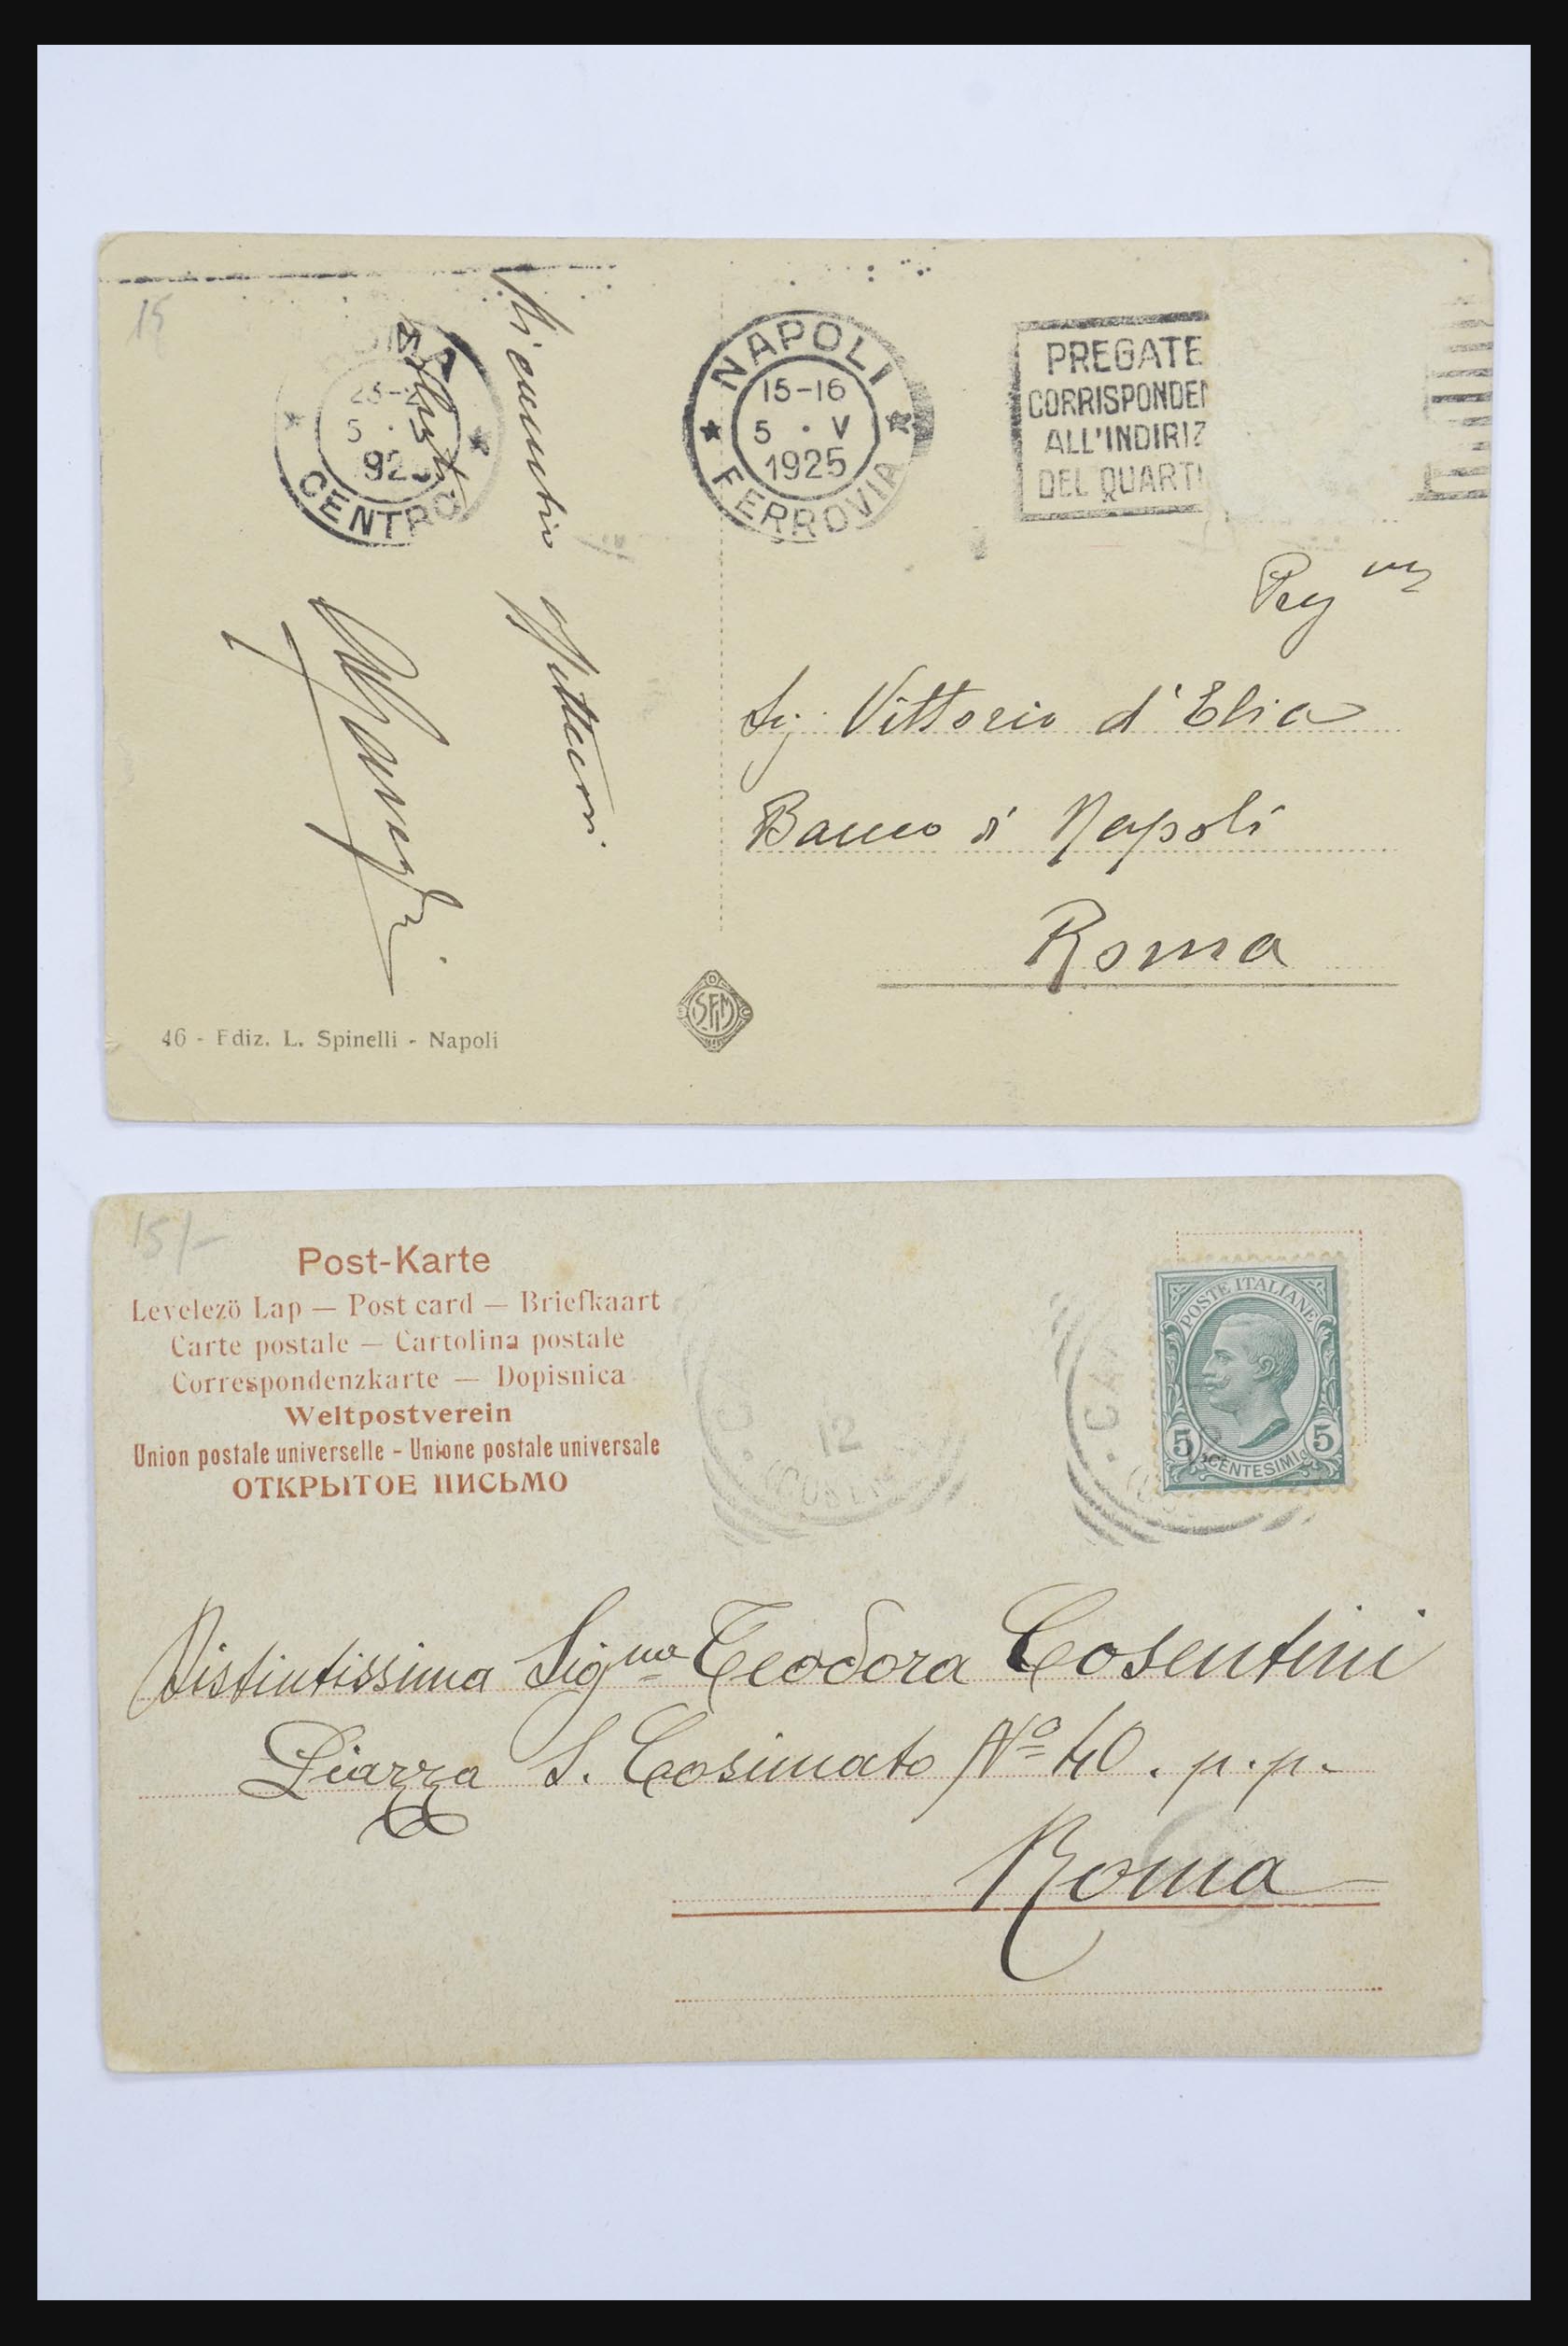 15
ROMA
23-2
5 ·
925
CENTRO
saluti
NAPOLI
15-16
5 · V
1925
FERROVIA
PREGATE
CORRISPONDEN
ALL'INDIRIZ
DEL QUARTI
Preg
Sig. Vittorio d'Elia
Banco di Napoli
Roma
SFM
46 - Ediz. L. Spinelli - Napoli
15/-
Post-Karte
Levelezö Lap — Post card — Briefkaart
Carte postale — Cartolina postale
Correspondenzkarte — Dopisnica
Weltpostverein
Union postale universelle - Unione postale universale
ОТКРЫТОЕ ПИСЬМО
12
CA
POSTE ITALIANE
5 CENTESIMI 5
Distintissima Sigma Teodora Cosentini
Piazza S. Cosimato No 40. p.p.
Roma